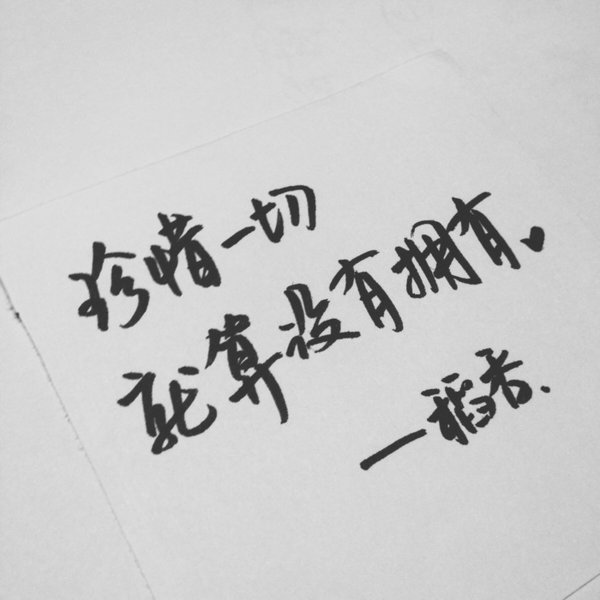 珍惜一切
就算没有拥有
一稻香.